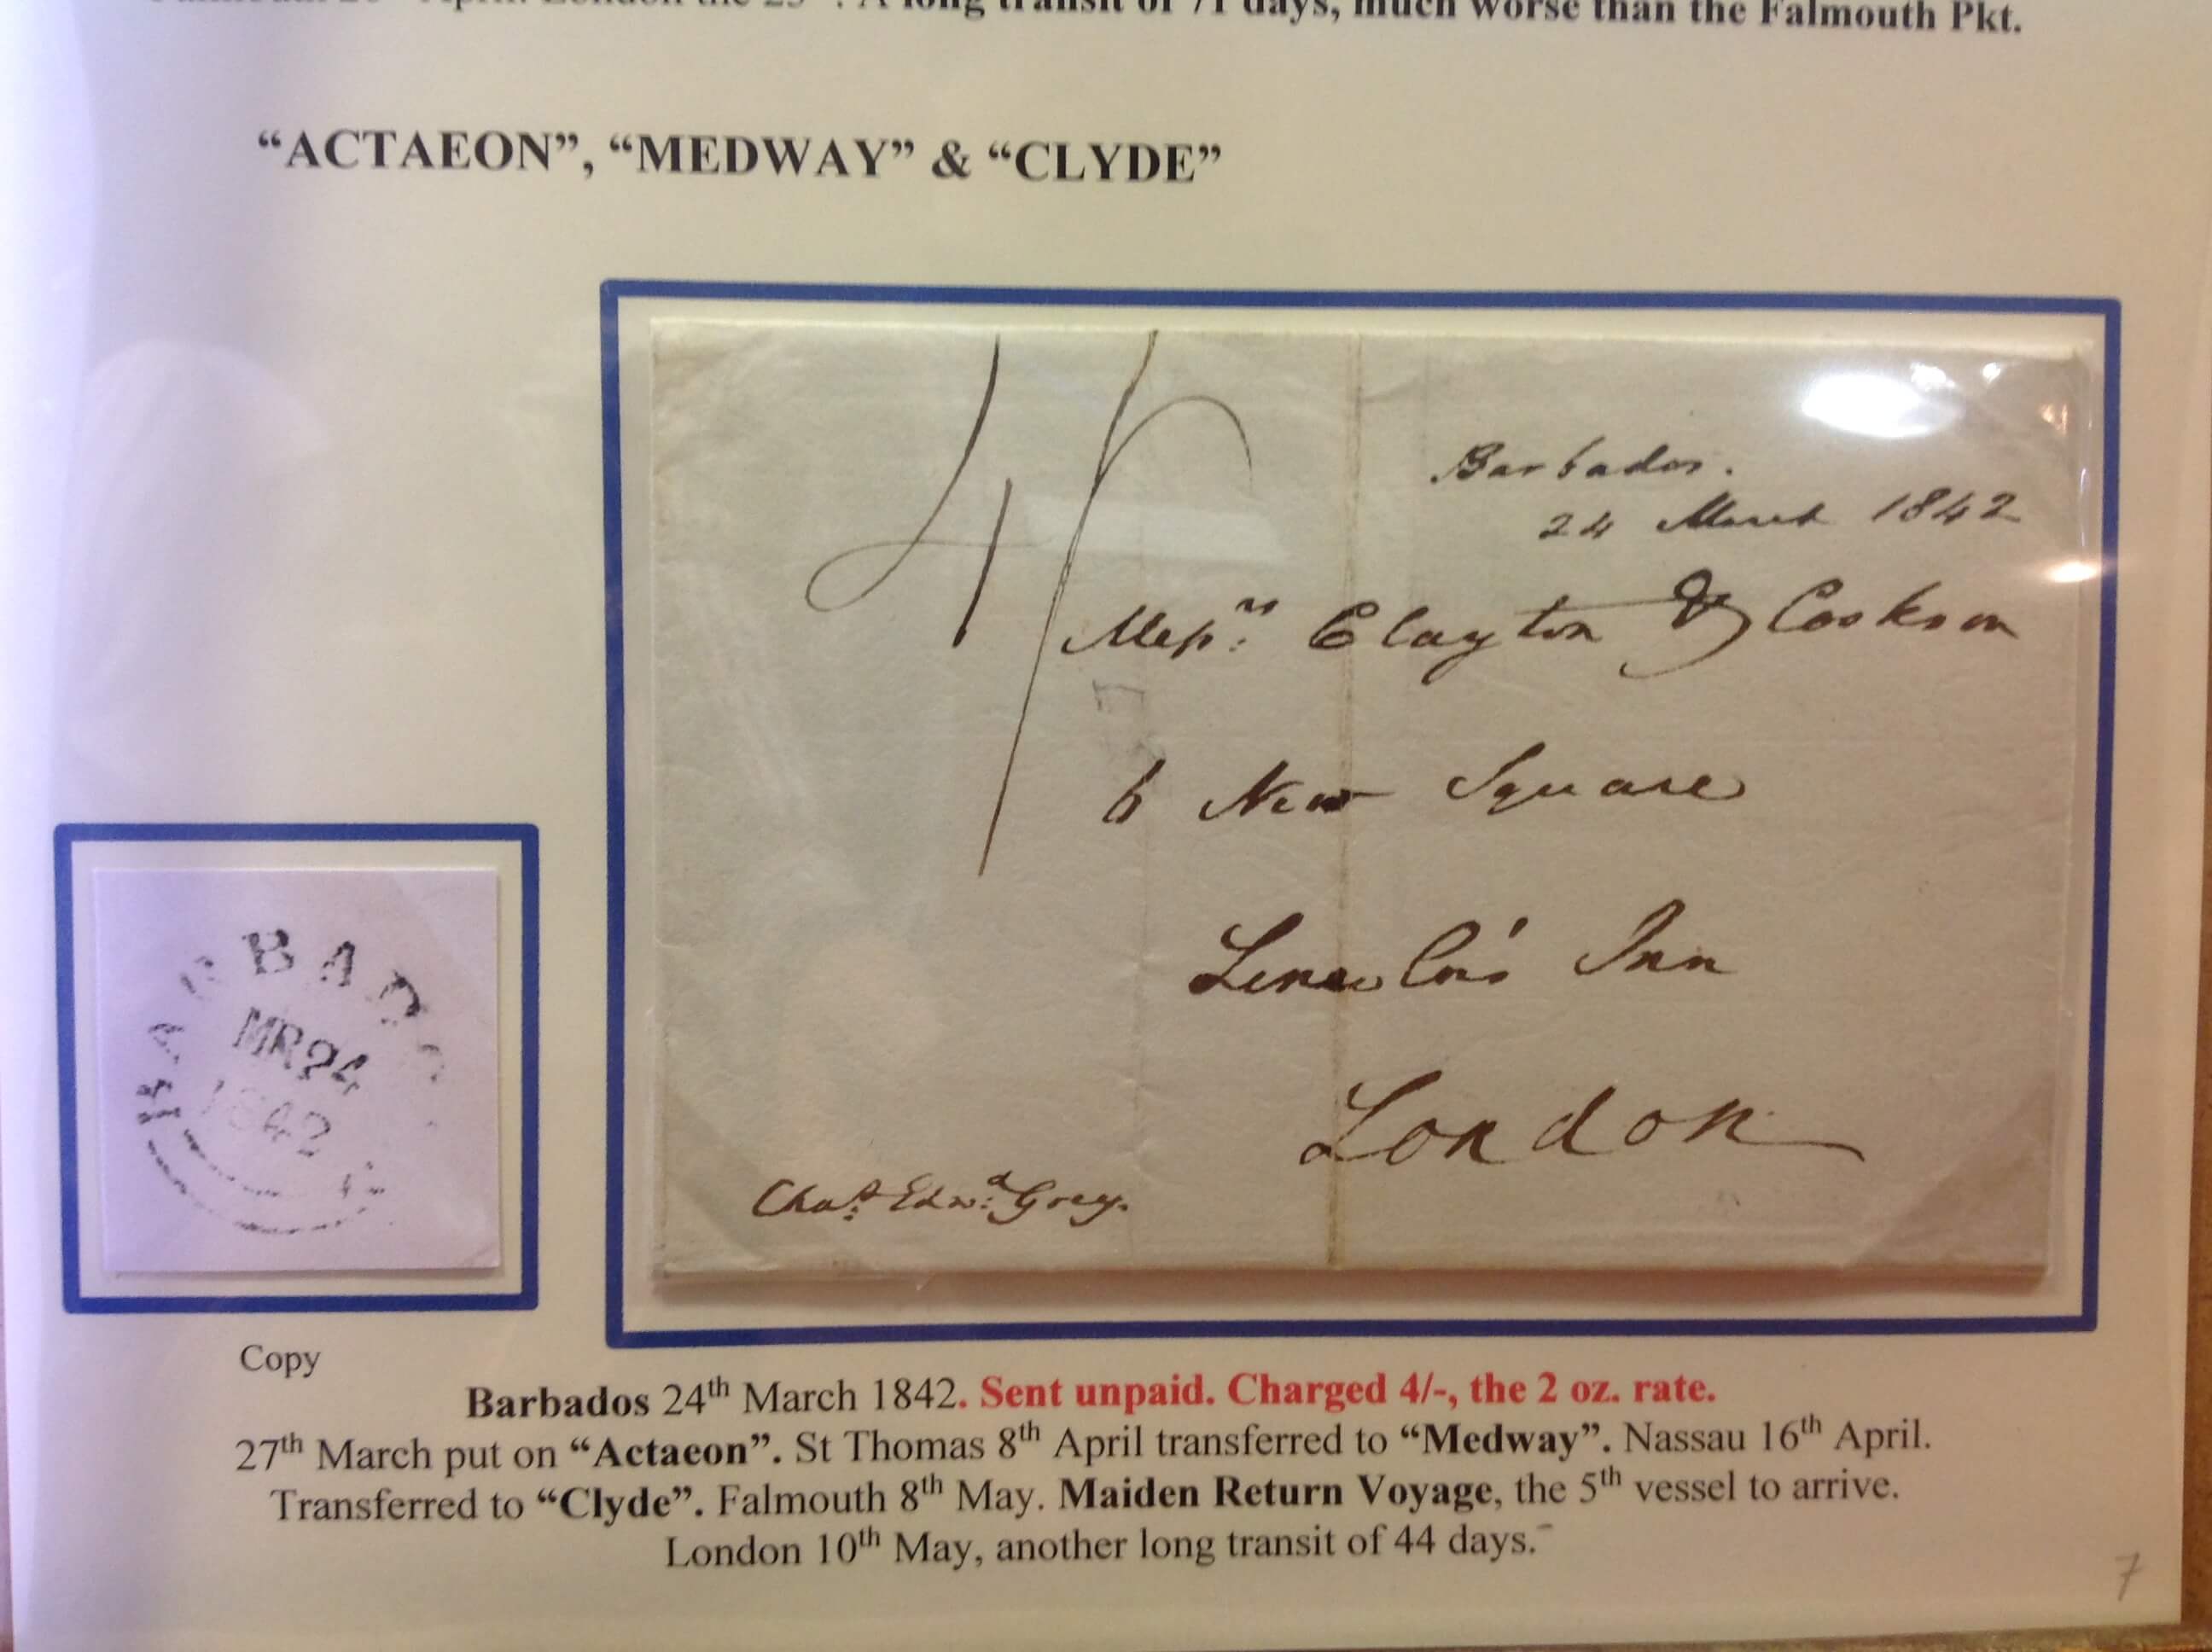 London the 23 . A long transit of 71 days, much worse than the Falmouth Pkt.
“ACTAEON”, “MEDWAY” & “CLYDE”
4/
Barbados.
24 March 1842
Messrs Clayton & Cookson
6 New Square
Lincoln's Inn
London
Chas. Edwd. Grey.
BARBADO
MR24
1842
Copy
Barbados 24th March 1842. Sent unpaid. Charged 4/-, the 2 oz. rate.
27th March put on “Actaeon”. St Thomas 8th April transferred to “Medway”. Nassau 16th April.
Transferred to “Clyde”. Falmouth 8th May. Maiden Return Voyage, the 5th vessel to arrive.
London 10th May, another long transit of 44 days.
7